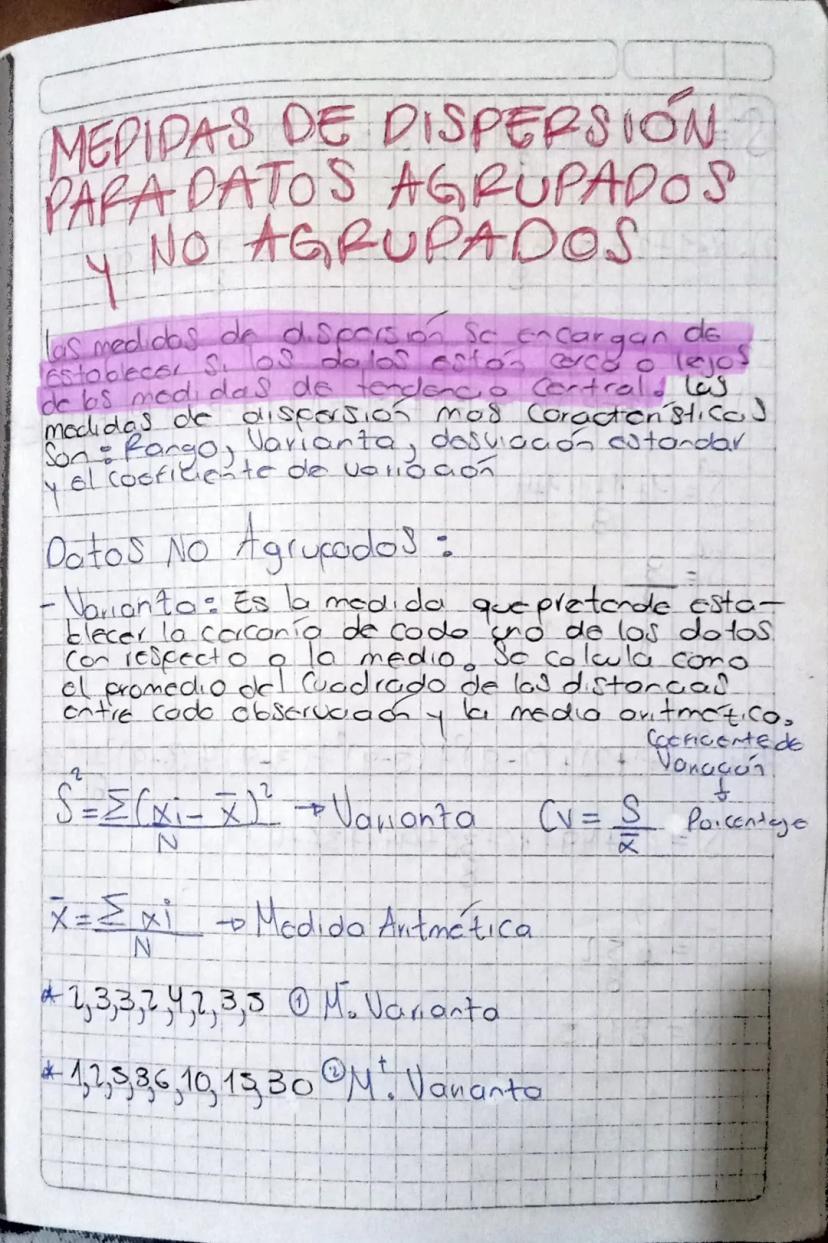 MEDIDAS DE DISPERSIÓN
PARA DATOS AGRUPADOS
y NO AGRUPADOS
las medidas de dispersión se encargan de
establecer si los datos están cerca o lejos
de las medidas de tendencia central. las
medidas de dispersión mas características
son: Rango, Varianta, desviación estandar
y el coeficiente de variación
Datos No Agrupados:
- Varianta: Es la medida que pretende esta-
blecer la cercanía de cada uno de los datos
con respecto a la media. Se calcula como
el promedio del cuadrado de las distancias
entre cada observación y la media aritmética.
Coeficiente de
Variación
↓
S² = Σ(xi - x̄)² / N → Varianta CV = S / x̄ Porcentaje
x̄ = Σ xi / N → Medida Aritmética
* 2,3,3,2,4,2,3,5 ① M⁻. Varianta
* 1,2,5,8,6,10,15,30 ② M⁺. Varianta